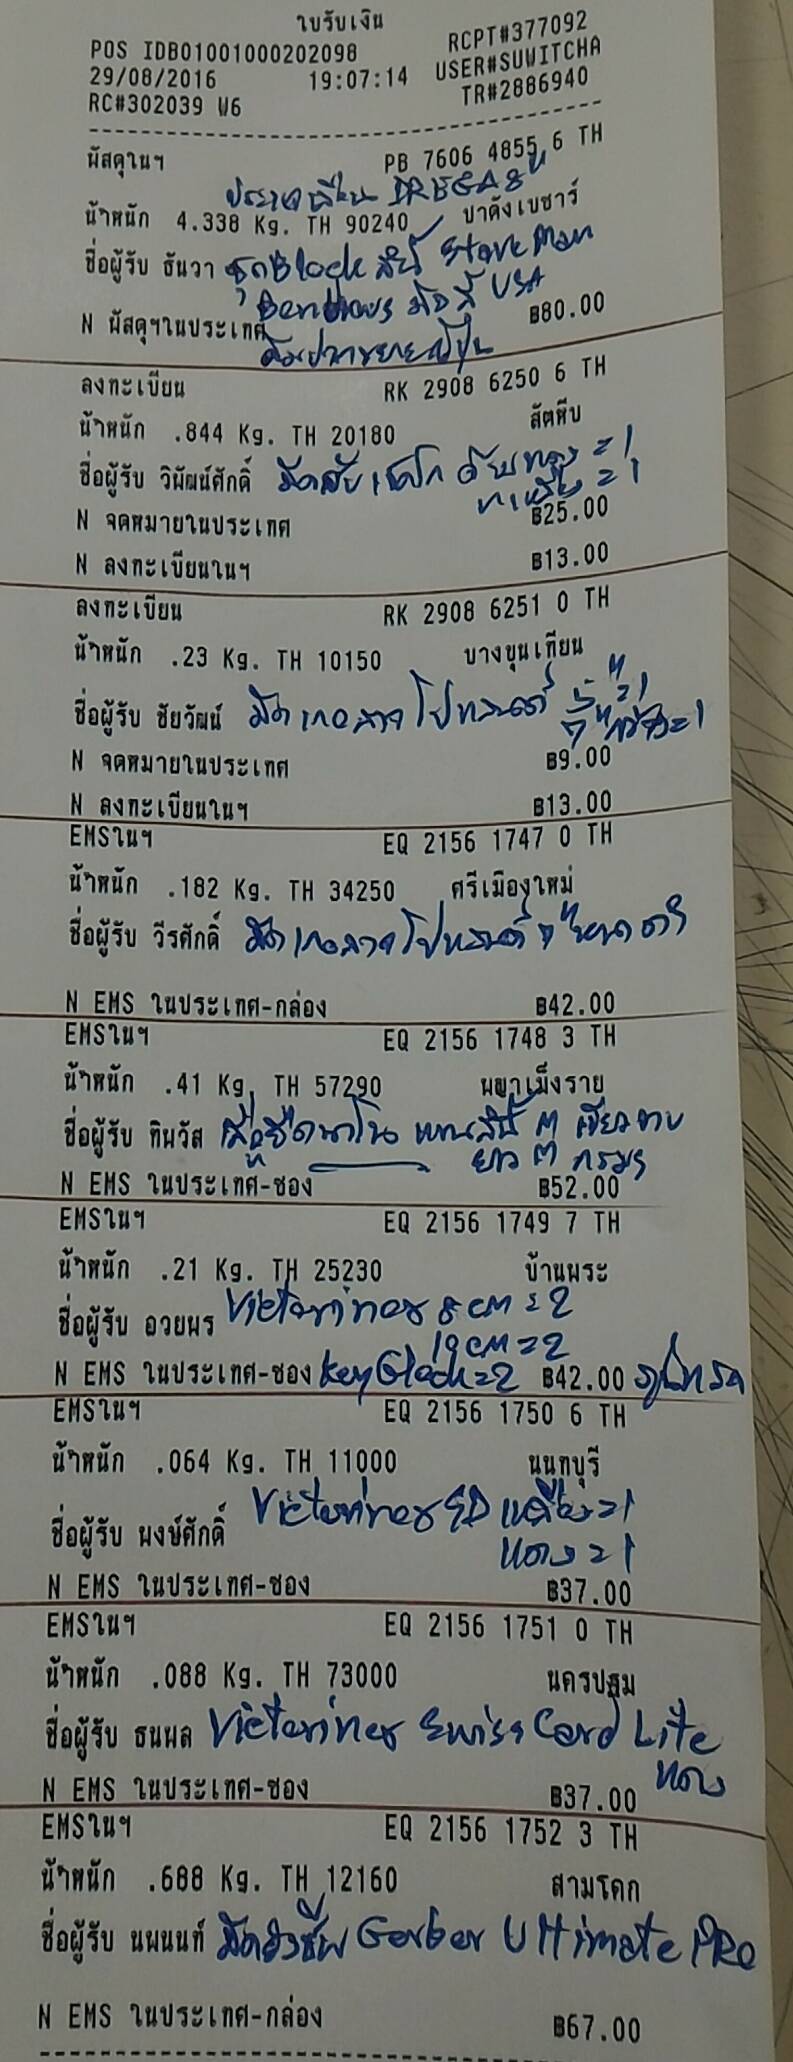 ใบรับเงิน
POS IDB01001000202098 RCPT#377092
29/08/2016 19:07:14 USER#SUWITCHA
RC#302039 W6 TR#2886940
พัสดุในฯ PB 7606 4855 6 TH
น้ำหนัก 4.338 Kg. TH 90240 ปาดังเบซาร์
ชื่อผู้รับ ธันวา Block
USA
N พัสดุฯในประเทศ ฿80.00
ลงทะเบียน RK 2908 6250 6 TH
น้ำหนัก .844 Kg. TH 20180 สัตหีบ
ชื่อผู้รับ วิพัฒน์ศักดิ์ =1
=1
N จดหมายในประเทศ ฿25.00
N ลงทะเบียนในฯ ฿13.00
ลงทะเบียน RK 2908 6251 0 TH
น้ำหนัก .23 Kg. TH 10150 บางขุนเทียน
ชื่อผู้รับ ชัยวัฒน์ =1
=1
N จดหมายในประเทศ ฿9.00
N ลงทะเบียนในฯ ฿13.00
EMSในฯ EQ 2156 1747 0 TH
น้ำหนัก .182 Kg. TH 34250 ศรีเมืองใหม่
ชื่อผู้รับ วีรศักดิ์
N EMS ในประเทศ-กล่อง ฿42.00
EMSในฯ EQ 2156 1748 3 TH
น้ำหนัก .41 Kg. TH 57290 พญาเม็งราย
ชื่อผู้รับ ทิพวัส เสื้อยืดนาโน
N EMS ในประเทศ-ซอง ฿52.00
EMSในฯ EQ 2156 1749 7 TH
น้ำหนัก .21 Kg. TH 25230 บ้านพระ
ชื่อผู้รับ อวยพร Victorinox 8 cm = 2
=2
N EMS ในประเทศ-ซอง Key =2 ฿42.00
EMSในฯ EQ 2156 1750 6 TH
น้ำหนัก .064 Kg. TH 11000 นนทบุรี
ชื่อผู้รับ พงษ์ศักดิ์ Victorinox SD เหลือง=1
แดง = 1
N EMS ในประเทศ-ซอง ฿37.00
EMSในฯ EQ 2156 1751 0 TH
น้ำหนัก .088 Kg. TH 73000 นครปฐม
ชื่อผู้รับ ธนพล Victorinox Swiss Card Lite
แดง
N EMS ในประเทศ-ซอง ฿37.00
EMSในฯ EQ 2156 1752 3 TH
น้ำหนัก .688 Kg. TH 12160 สามโคก
ชื่อผู้รับ นพนนท์ มีดยังชีพ Gerber Ultimate PRO
N EMS ในประเทศ-กล่อง ฿67.00